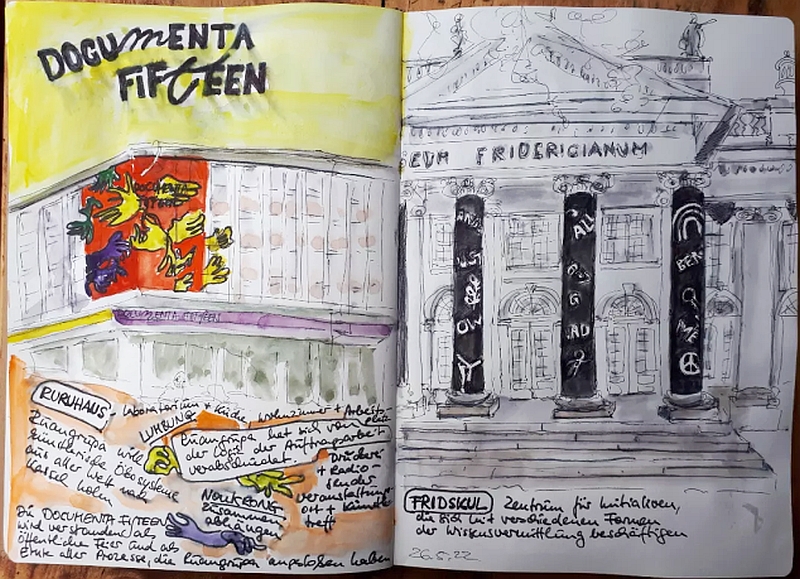 DOCUMENTA
FIFTEEN
DOCUMENTA
FIFTEEN
DOCUMENTA FIFTEEN
RURUHAUS - Laboratorium + Küche, Wohnzimmer + Arbeits-
LUMBUNG
Ruangrupa will
künstlerische Ökosysteme
aus aller Welt nach
Kassel holen
Ruangrupa hat sich von
der Logik der Auftragsarbeit
verabschiedet.
Druckerei
+ Radio-
sender
veranstaltungs-
ort +
treff
NONKRONG
zusammen
abhängen
Die DOCUMENTA FIFTEEN
wird verstanden als
öffentliche Feier und als
Ernte aller Prozesse, die Ruangrupa angestoßen haben
EUM FRIDERICIANUM
ALL
OW
G
AD
BER
ME
FRIDSKUL Zentrum für Initiativen,
die sich mit verschiedenen Formen
der Wissensvermittlung beschäftigen
26.8.22